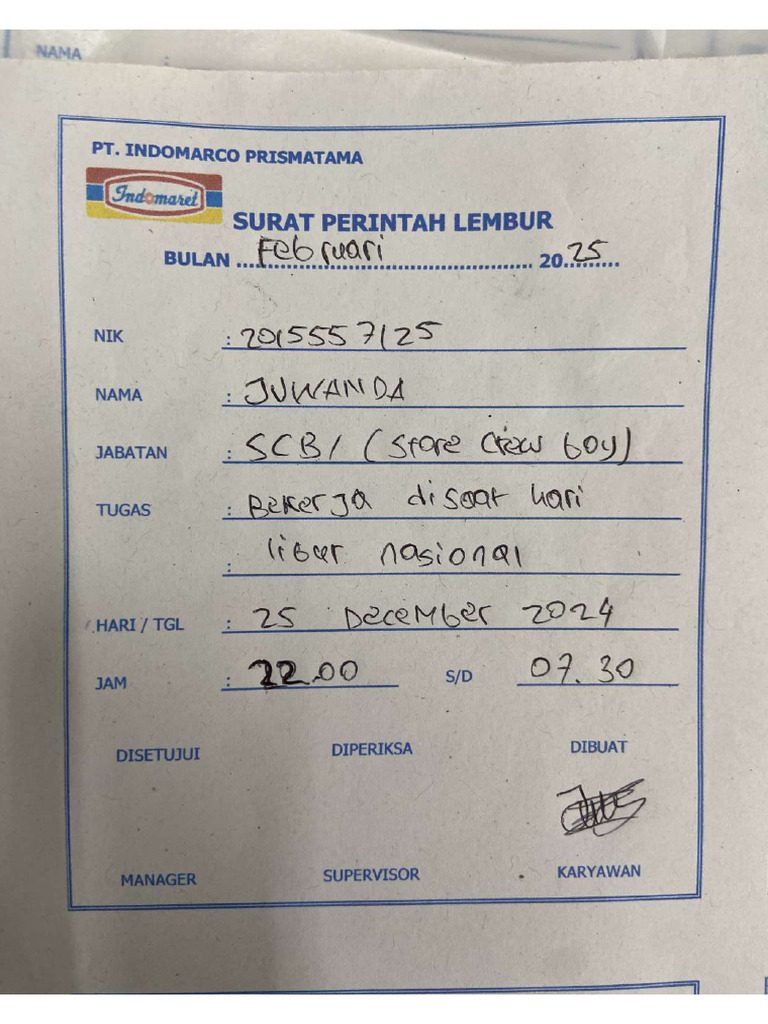 NAMA :
PT. INDOMARCO PRISMATAMA
Indomaret
SURAT PERINTAH LEMBUR
BULAN ...Februari... 20.25...
NIK : 2015557125
NAMA : JUWANDA
JABATAN : SCB / (Store Crew boy)
TUGAS : Bekerja disaat hari
: libur nasional
HARI / TGL : 25 December 2024
JAM : 22.00 S/D 07.30
DISETUJUI DIPERIKSA DIBUAT
MANAGER SUPERVISOR KARYAWAN